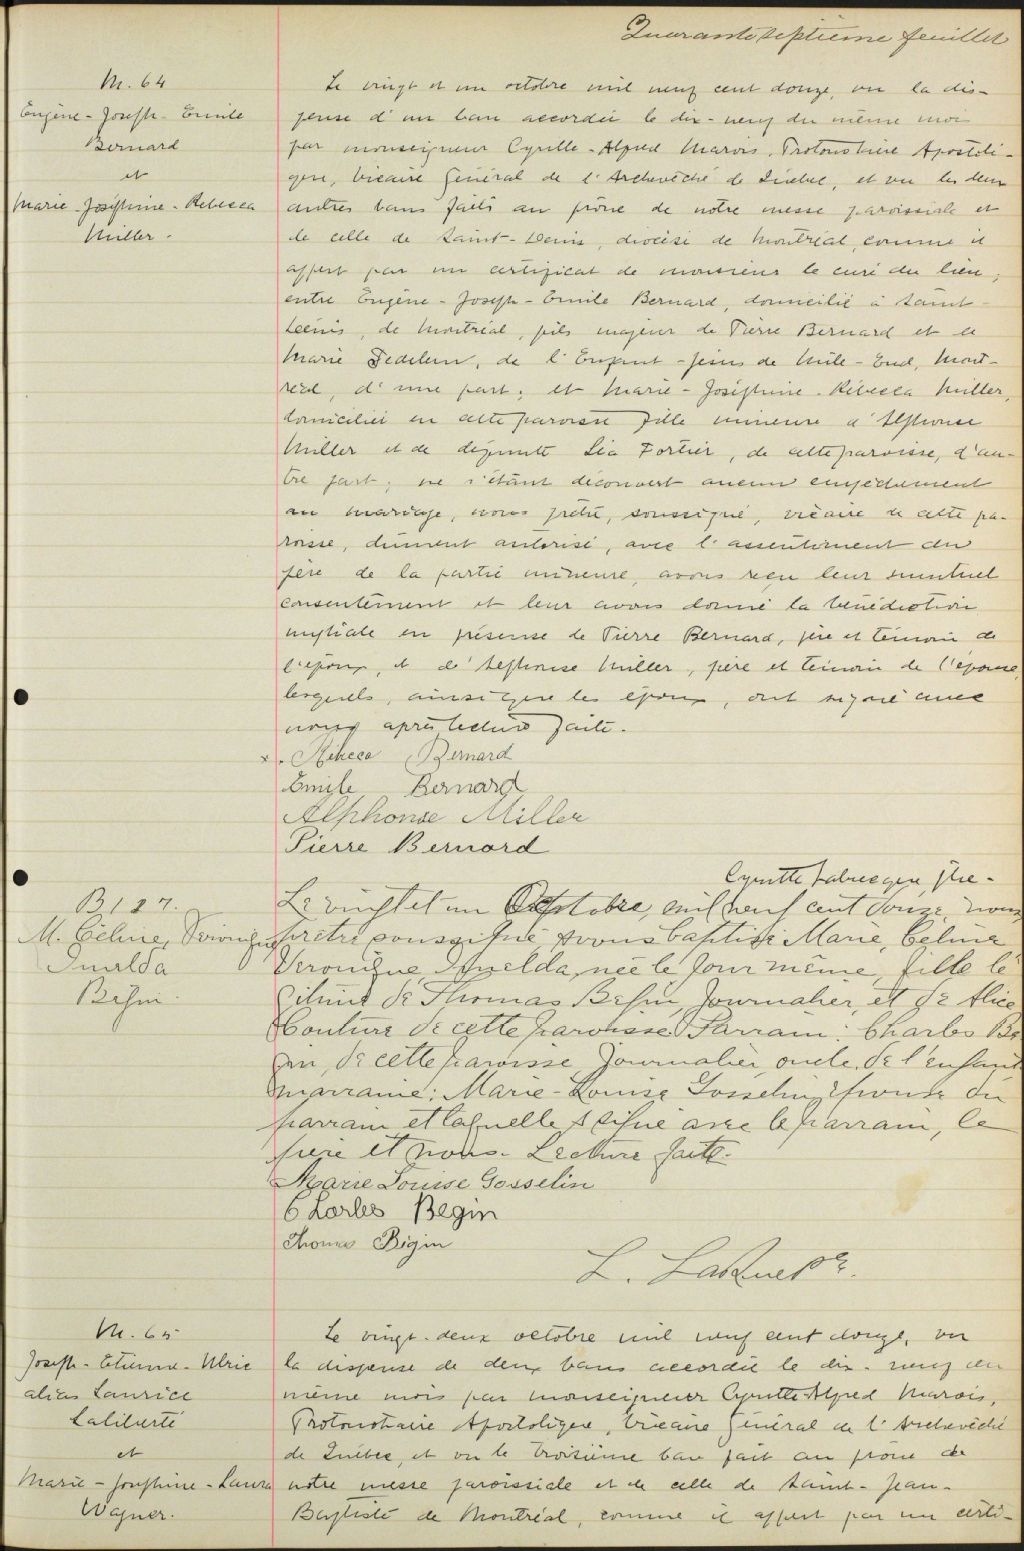 Quarante septième feuillet
M. 64
Eugène-Joseph-Emile
Bernard
et
Marie-Joséphine-Rebecca
Miller.
Le vingt et un octobre mil neuf cent douze, vu la dis-
pense d'un ban accordée le dix-neuf du même mois
par monseigneur Cyrille-Alfred Marois, Protonotaire Apostoli-
que, vicaire général de l'Archevêché de Québec, et vu les deux
autres bans faits au prône de notre messe paroissiale et
de celle de Saint-Denis, diocèse de Montréal, comme il
appert par un certificat de monsieur le curé du lieu;
entre Eugène-Joseph-Emile Bernard, domicilié à Saint-
Denis, de Montréal, fils majeur de Pierre Bernard et de
Marie, de l'Enfant-Jésus de Mile-End, Mont-
réal, d'une part; et Marie-Joséphine-Rébecca Miller,
domiciliée en cette paroisse fille mineure d'Alphonse
Miller et de défunte Léa Fortier, de cette paroisse, d'au-
tre part; ne s'étant découvert aucun empêchement
au mariage, nous prêtre, soussigné, vicaire de cette pa-
roisse, dûment autorisé, avec l'assentiment du
père de la partie mineure, avons reçu leur mutuel
consentement et leur avons donné la bénédiction
nuptiale en présense de Pierre Bernard, père et témoin de
l'époux, et de Alphonse Miller, père et témoin de l'épouse,
lesquels, ainsi que les époux, ont signé avec
nous après lecture faite.
Rebecca Bernard
Emile Bernard
Alphonse Miller
Pierre Bernard
Cyrille ptre-
B 127.
M. Céline, Véronique
Imelda
Bégin.
Le vingt et un Octobre, mil neuf cent douze, nous
prêtre soussigné, avons baptisé Marie, Céline
Veronique, Imelda, née le jour même, fille lé
gitime de Thomas Bégin, Journalier, et de Alice
Couture de cette paroisse. Parrain: Charles Bé
gin, de cette paroisse, journalier, oncle de l'enfant
marraine: Marie-Louise Gosselin épouse du
parrain, et laquelle a signé avec le parrain, le
père et nous. Lecture faite.
Marie Louise Gosselin
Charles Begin
Thomas Bégin
L. ptre.
M. 65
Joseph-Etienne-Ulric
alias Lauricé
Laliberté
et
Marie-Joséphine-Laura
Wagner.
Le vingt-deux octobre mil neuf cent douze, vu
la dispense de deux bans accordée le dix-neuf du
même mois par monseigneur Cyrille-Alfred Marois,
Protonotaire Apostolique, vicaire général de l'Archevêché
de Québec, et vu le troisième ban fait au prône de
notre messe paroissiale et de celle de Saint-Jean-
Baptiste de Montréal, comme il appert par un certi-